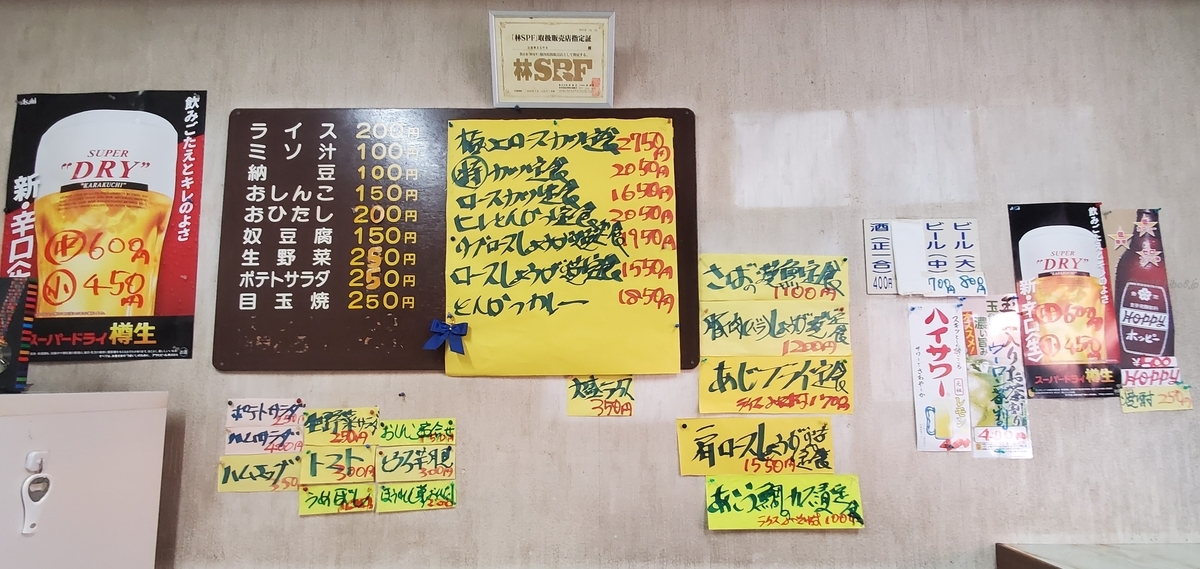 「林SPF」取扱販売店指定証
林SPF
Asahi
飲みごたえとキレのよさ
SUPER
"DRY"
"KARAKUCHI"
新・辛口生
中 600円
小 450円
スーパードライ 樽生
ライス 200円
ミソ汁 100円
納豆 100円
おしんこ 150円
おひたし 200円
奴豆腐 150円
生野菜 250円
ポテトサラダ 250円
目玉焼 250円
極上ロースカツ定食 2750円
特カツ定食 2050円
ロースカツ定食 1650円
ヒレとんかつ定食 2050円
リブロースしょうが焼定食 1950円
ロースしょうが焼定食 1550円
とんかつカレー 1850円
大盛ライス
350円
さばの定食
1100円
豚肉バラしょうが焼定食
1200円
あじフライ定食
肩ロースしょうが焼定食
1550円
あこう鯛カス漬定食
ポテトサラダ
250円
ハムサラダ
ハムエッグ
350円
生野菜サラダ
250円
トマト
300円
うめぼし
おしんこ盛合せ
300円
酒(正一合) 400円
ビール(中) 700円
ビール(大) 800円
ハイサワー
レモン
ウーロン茶割
400円
飲みごたえとキレのよさ
SUPER
"DRY"
新・辛口生
中 600円
小 450円
スーパードライ 樽生
HOPPY
ホッピー
¥500
HOPPY
250円